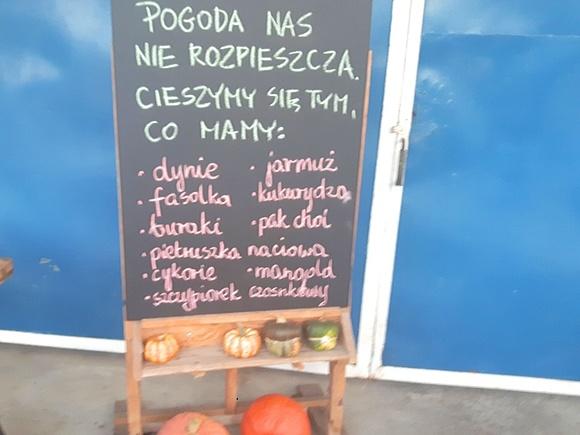 POGODA NAS
NIE ROZPIESZCZA.
CIESZYMY SIĘ TYM,
CO MAMY:
· dynie · jarmuż
· fasolka · kukurydza
· buraki · pak choi
· pietruszka naciowa
· cykorie · mangold
· szczypiorek czosnkowy